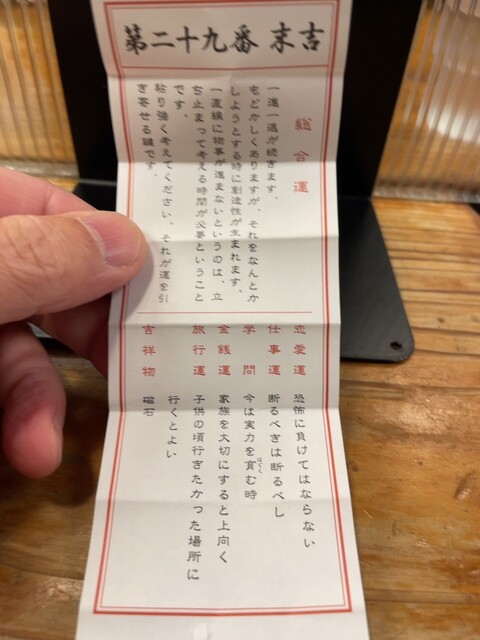 第二十九番 末吉
総合運
一進一退が続きます。
もどかしくありますが、それをなんとか
しようとする時に創造性が生まれます。
一直線に物事が進まないというのは、立
ち止まって考える時間が必要ということ
です。
粘り強く考えてください。それが運を引
き寄せる鍵です。
恋愛運 恐怖に負けてはならない
仕事運 断るべきは断るべし
学問 今は実力を育む時
はぐく
金銭運 家族を大切にすると上向く
旅行運 子供の頃行きたかった場所に
行くとよい
吉祥物 磁石